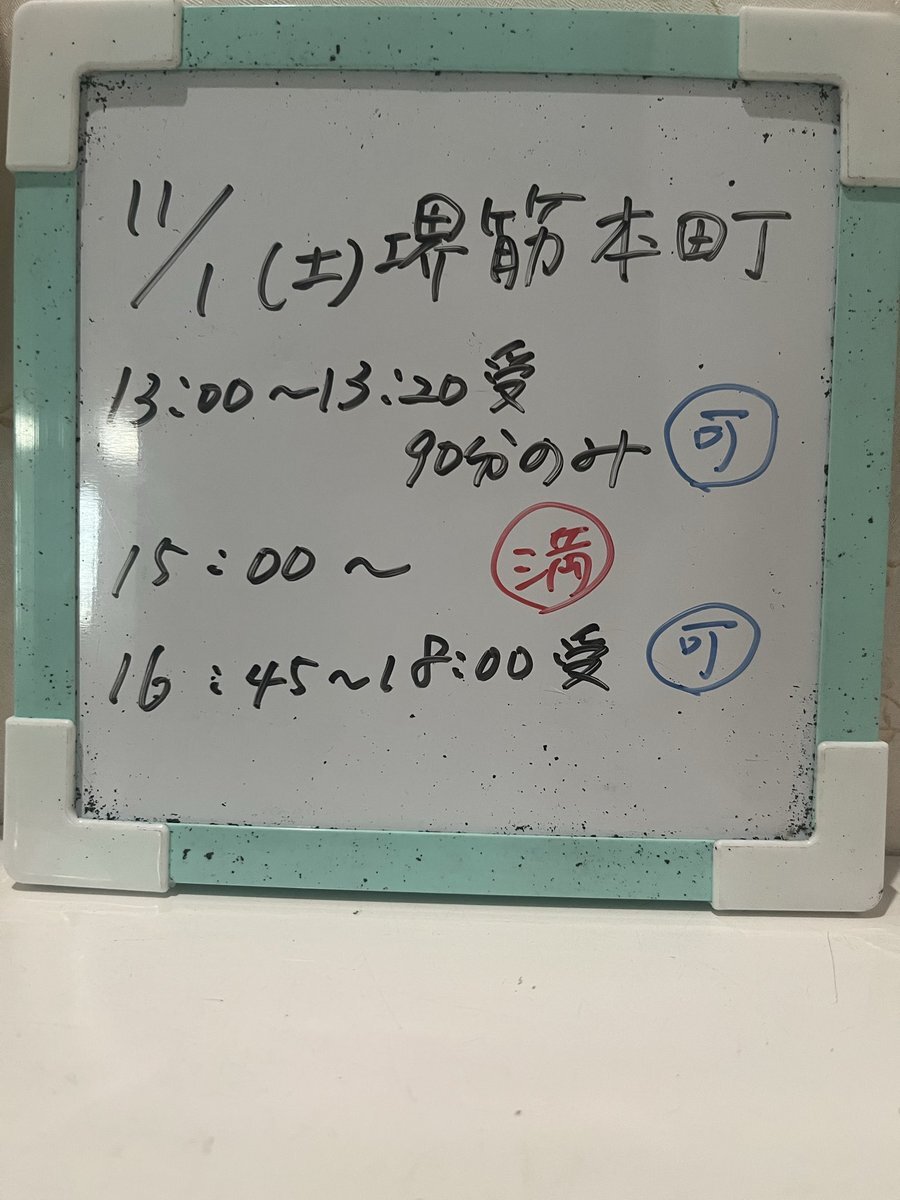 11/1(土)堺筋本町
13:00~13:20受
90分のみ 可
15:00~ 満
16:45~18:00受 可